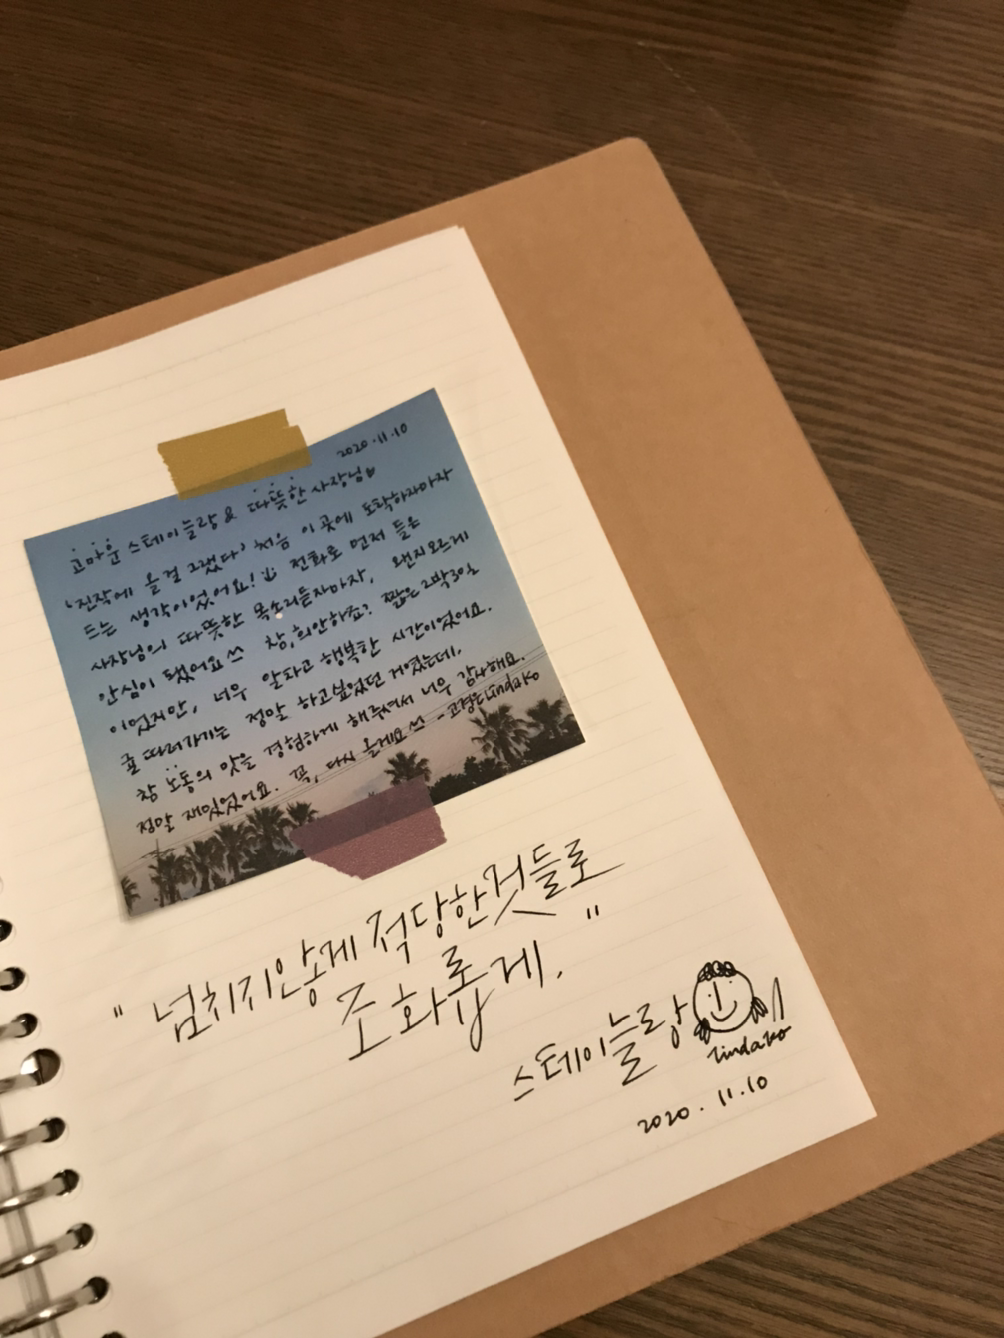 2020.11.10
고마운 스테이늘랑 & 따뜻한 사장님
'진작에 올걸 그랬다' 처음 이 곳에 도착하자마자
드는 생각이었어요! 전화로 먼저 들은
사장님의 따뜻한 목소리듣자마자, 왠지모르게
안심이 됐어요 참, 희안하죠? 짧은 2박3일
이었지만, 너무 알차고 행복한 시간이었어요.
귤따러가기는 정말 하고싶었던 거였는데,
참 노동의 맛을 경험하게 해주셔서 너무 감사해요.
정말 재밌었어요. 꼭, 다시 올게요 - 고경은lindako
"넘치지않게 적당한것들로
조화롭게."
스테이늘랑
lindako
2020.11.10